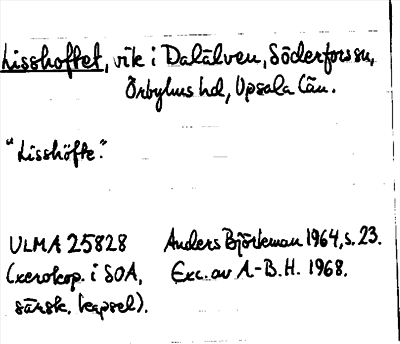 Lisshoftet, vik i Dalälven, Söderfors sn,
Örbyhus hd, Upsala län.
"Lisshöfte."
ULMA 25828 Anders Björkman 1964, s. 23.
(xerokop. i SOA, Exc. av A.-B.H. 1968.
särsk. kapsel).